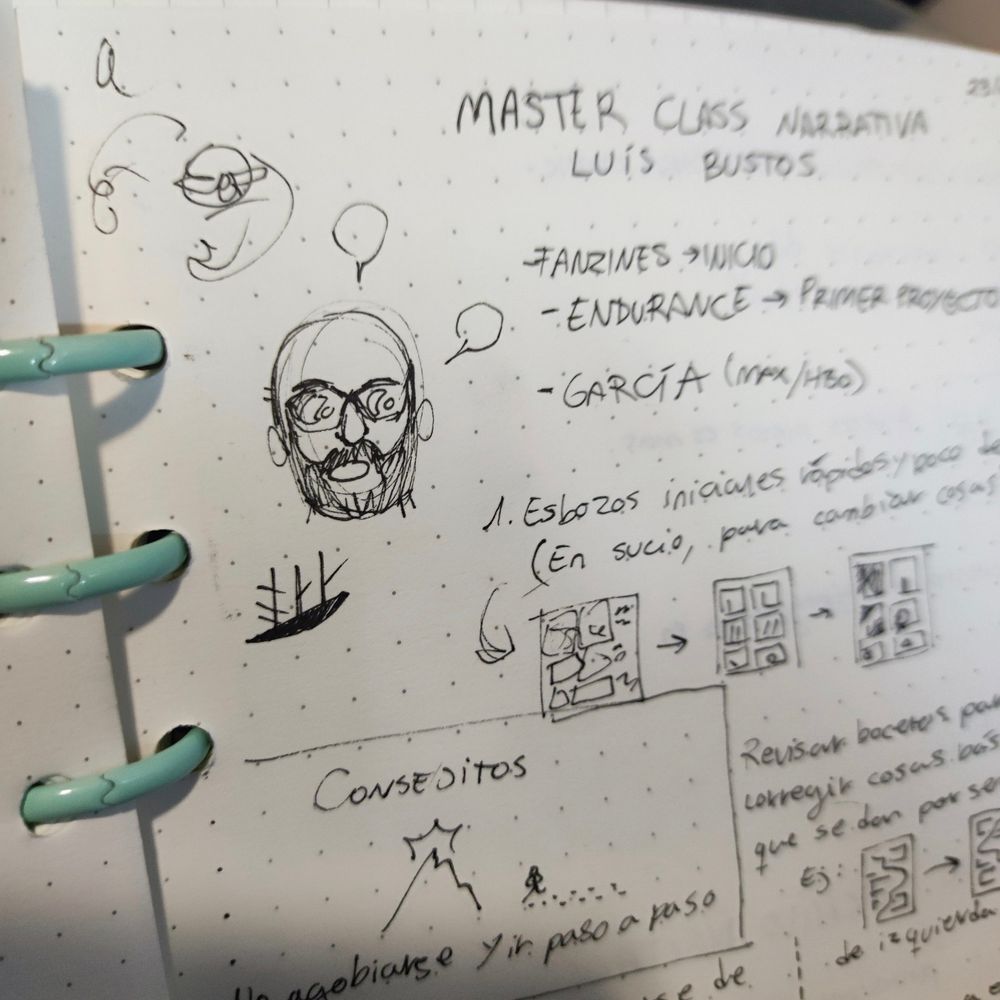 a
23/
MASTER CLASS NARRATIVA
LUÍS BUSTOS
-FANZINES → INICIO
- ENDURANCE → PRIMER PROYECTO
- GARCÍA (MAX/HBO)
1. Esbozos iniciales rápidos y poco de
(En sucio, para cambiar cosas
CONSEJITOS
No agobiarse y ir paso a paso
Revisar bocetos par
corregir cosas bás
que se dan por se
Ej:
de izquierda
se de